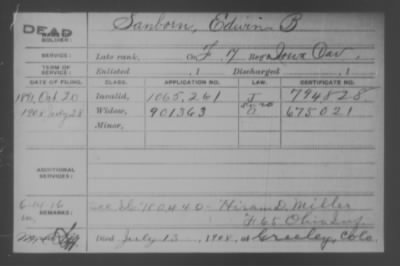 DEAD
SOLDIER:
Sanborn, Edwin B
SERVICE:
Late rank, Co. F, 7 Reg't Iowa Cav.
TERM OF SERVICE:
Enlisted , 1 Discharged , 1
DATE OF FILING. CLASS. APPLICATION NO. LAW. CERTIFICATE NO.
1891, Oct 20 Invalid, 1065,261 J 794828
1908 July 28 Widow, 901363 675021
Minor,
ADDITIONAL SERVICES:
6-14-16
REMARKS:
700440 - Hiram D. Miller
F 65 Ohio Inf
Died July 13, 1908, at Greeley, Colo